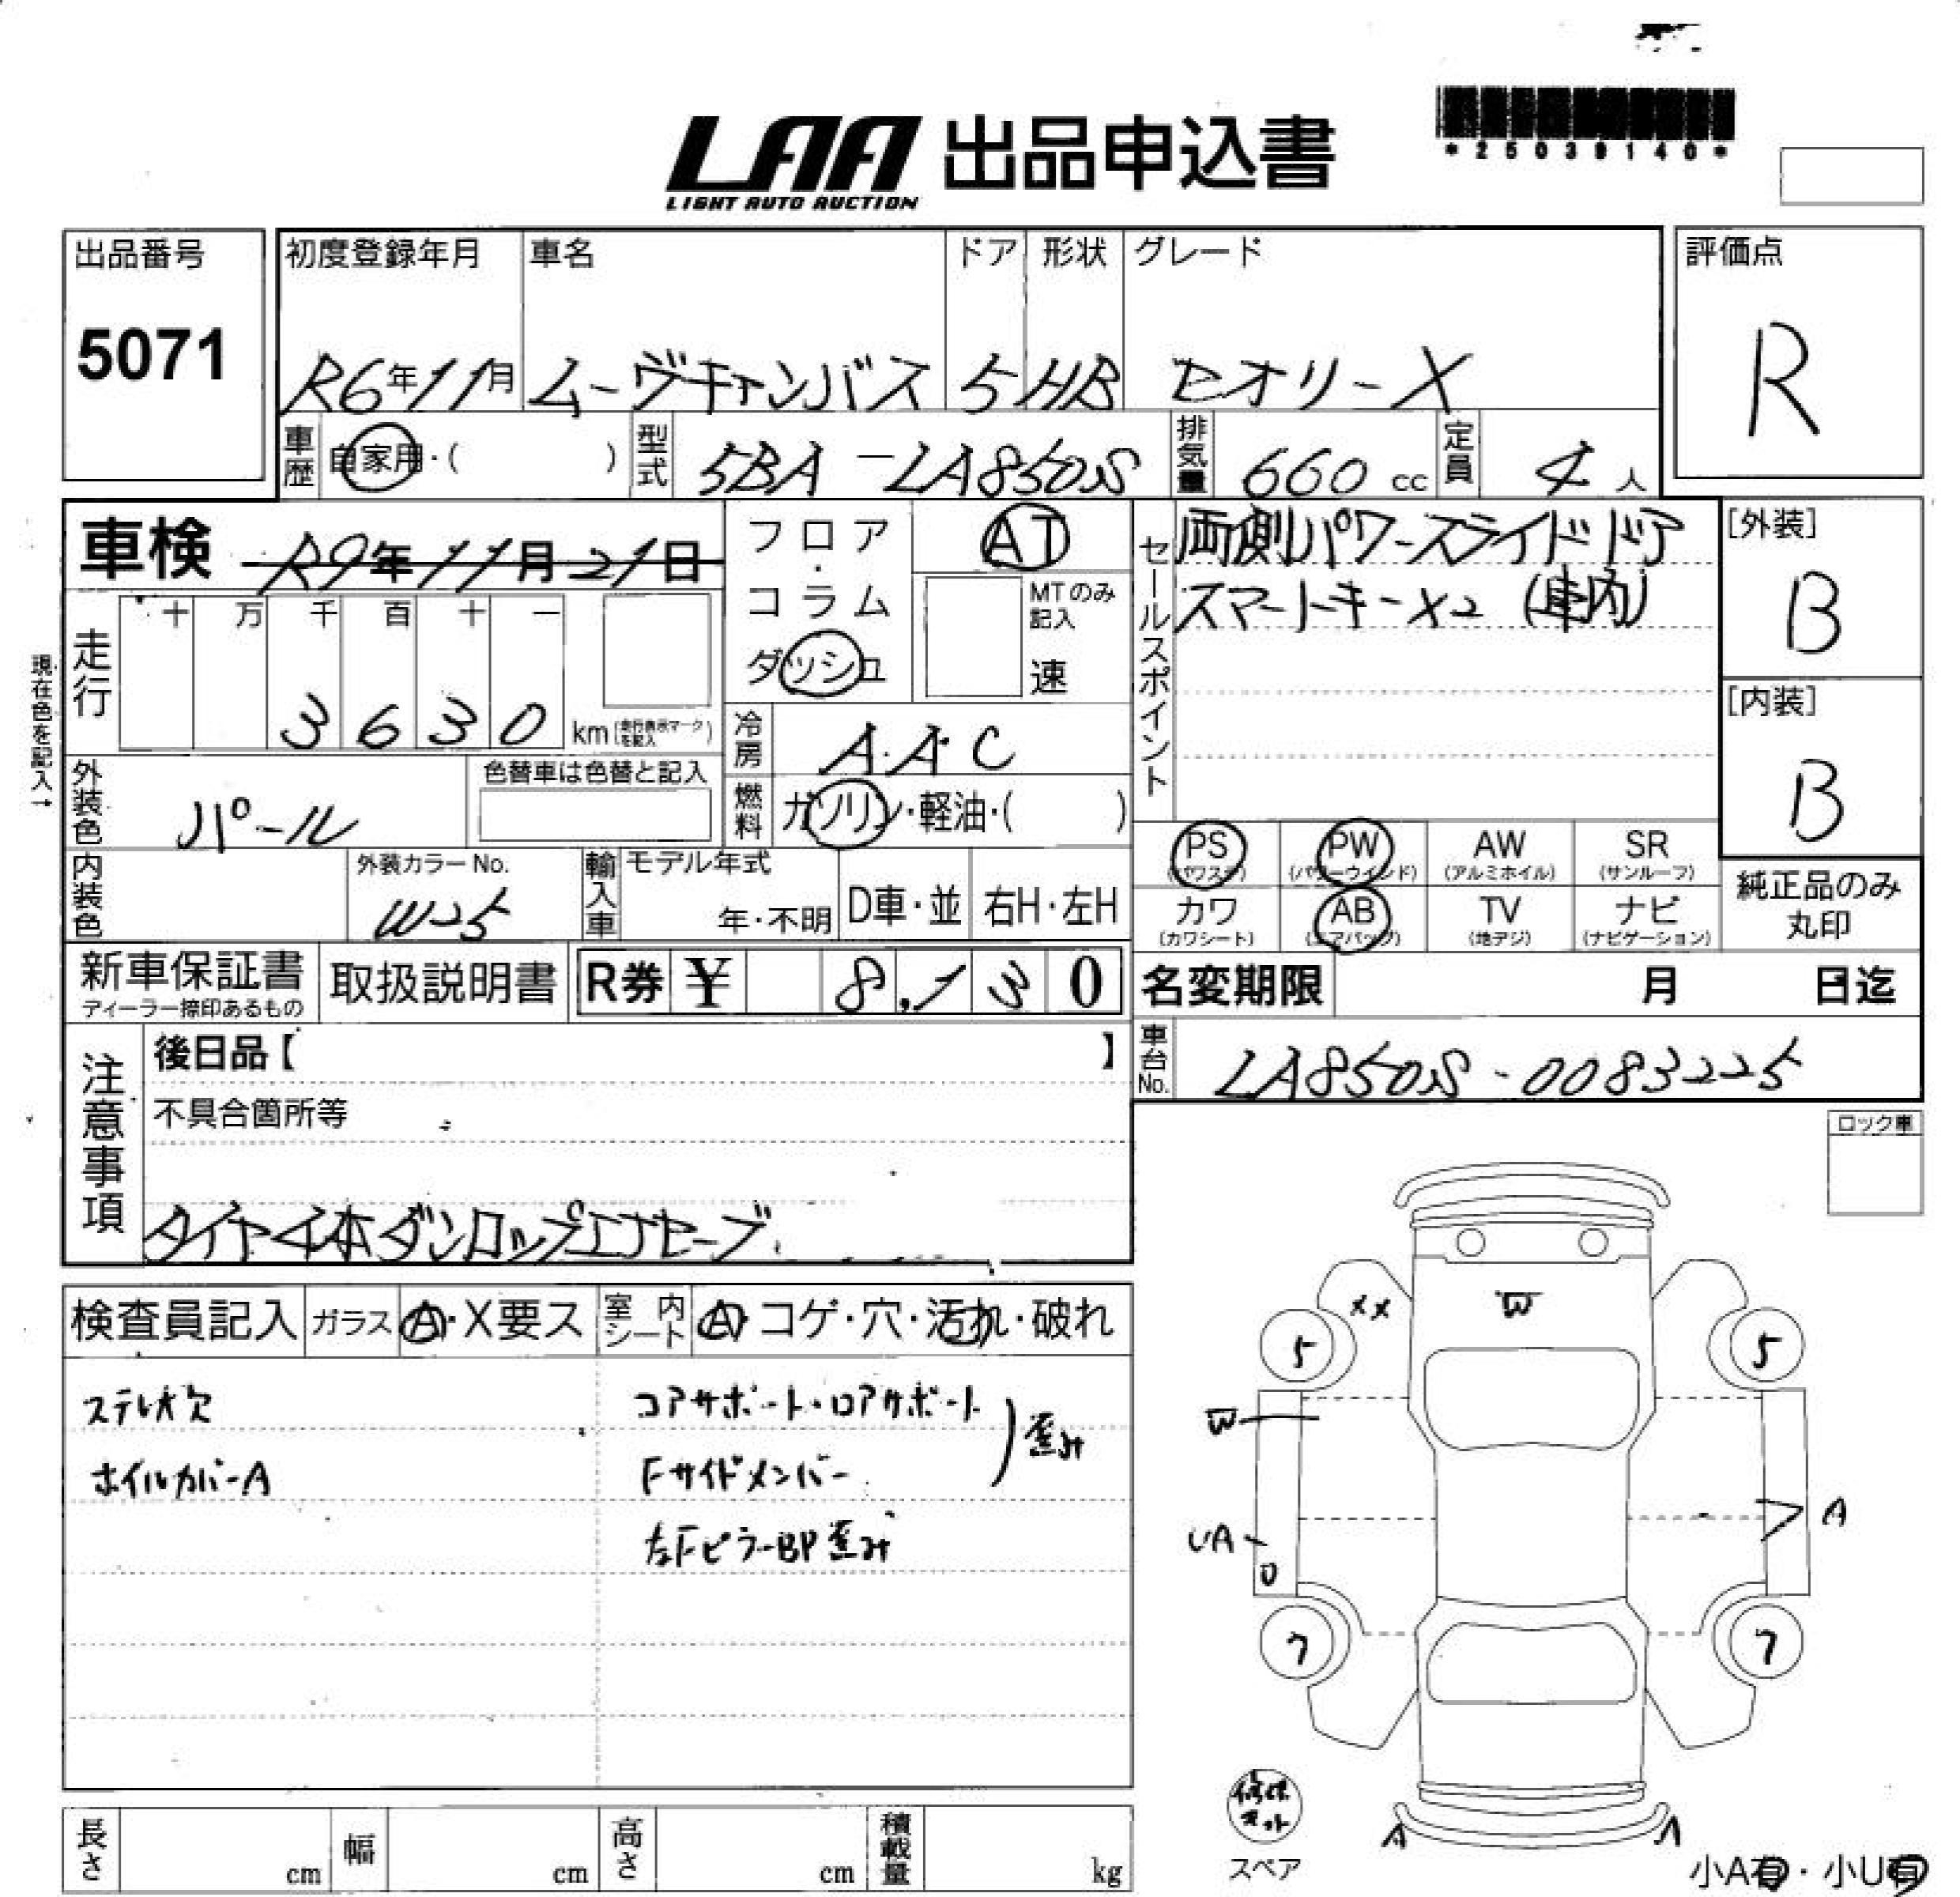 LAA 出品申込書
LIGHT AUTO AUCTION
*25039140*
出品番号
5071
初度登録年月
R6年11月
車名
ムーヴキャンバス
ドア
5
形状
HB
グレード
セオリーX
評価点
R
車歴
自家用・( )
型式
5BA-LA850S
排気量
660 cc
定員
4人
車検
R9年11月21日
フロア・コラム
ダッシュ
AT
MTのみ記入
速
セールスポイント
両側パワースライドドア
スマートキー×2 (車内)
[外装]
B
[内装]
B
現在色を記入→
走行
十 万 千 百 十 一
3 6 3 0 km (走行表示マークを記入)
冷房
AAC
外装色
パール
色替車は色替と記入
燃料
ガソリン・軽油・( )
PS (パワステ)
PW (パワーウインド)
AW (アルミホイル)
SR (サンルーフ)
カワ (カワシート)
AB (エアバッグ)
TV (地デジ)
ナビ (ナビゲーション)
純正品のみ
丸印
内装色
外装カラーNo.
W25
輸入車
モデル年式
年・不明
D車・並
右H・左H
新車保証書
ディーラー捺印あるもの
取扱説明書
R券 ¥ 8,130
名変期限 月 日迄
注意事項
後日品【 】
車台No.
LA850S-0083225
不具合箇所等
タイヤ4本ダンロップエナセーブ
ロック車
検査員記入
ガラス
A・X要ス
室内シート
A・コゲ・穴・汚れ・破れ
ステレオ欠
コアサポート・ロアサポート
ホイルカバーA
Fサイドメンバー
歪み
左FピラーBP歪み
XX
W
5
5
W
A
UA
U
7
7
修理キット
スペア
A
A
小A有・小U有
長さ cm
幅 cm
高さ cm
積載量 kg